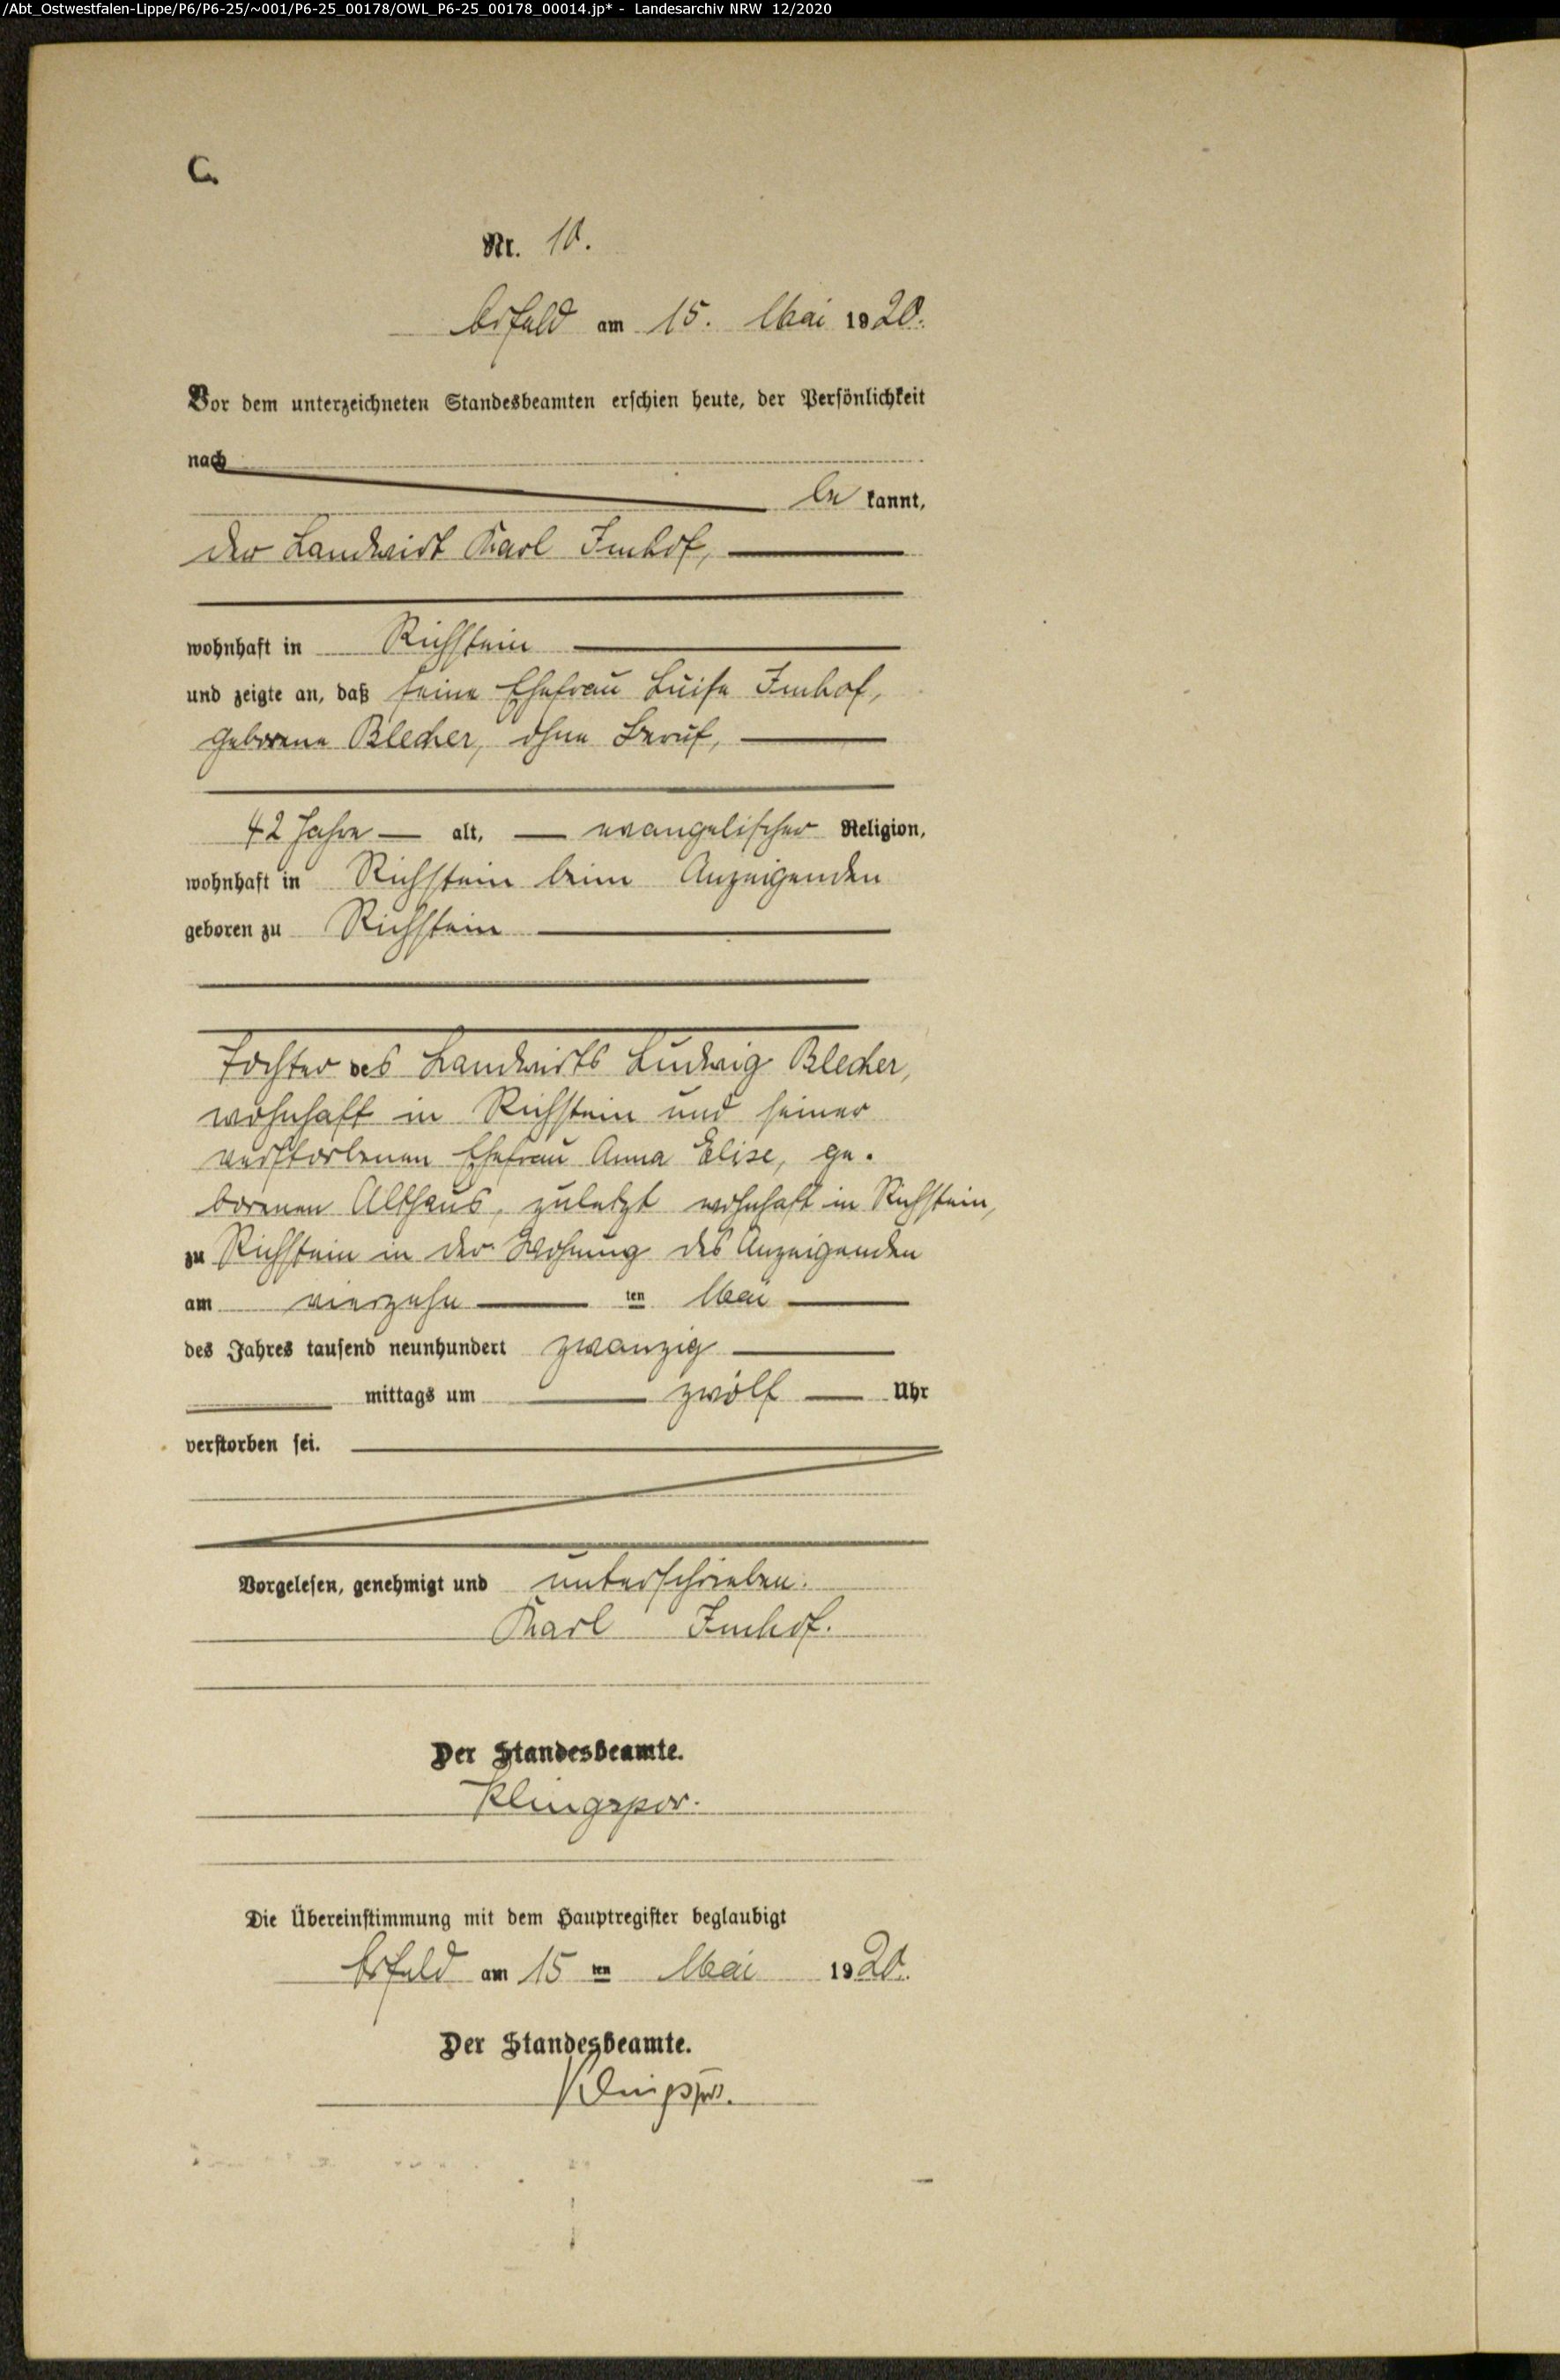 /Abt_Ostwestfalen-Lippe/P6/P6-25/~001/P6-25_00178/OWL_P6-25_00178_00014.jp* - Landesarchiv NRW 12/2020
C.
Nr. 10.
Arfeld am 15. Mai 1920.
Vor dem unterzeichneten Standesbeamten erschien heute, der Persönlichkeit
nach
be kannt,
der Landwirt Karl Imhof,
wohnhaft in Richstein
und zeigte an, daß seine Ehefrau Luise Imhof,
geborene Blecher, ohne Beruf,
42 Jahre alt, evangelischer Religion,
wohnhaft in Richstein beim Anzeigenden
geboren zu Richstein
Tochter des Landwirts Ludwig Blecher,
wohnhaft in Richstein und seiner
verstorbenen Ehefrau Anna Elise, ge.
borenen Althaus, zuletzt wohnhaft in Richstein,
zu Richstein in der Wohnung des Anzeigenden
am vierzehn ten Mai
des Jahres tausend neunhundert zwanzig
mittags um zwölf Uhr
verstorben sei.
Vorgelesen, genehmigt und unterschrieben.
Karl Imhof.
Der Standesbeamte.
Klingspor.
Die Übereinstimmung mit dem Hauptregister beglaubigt
Arfeld am 15 ten Mai 1920.
Der Standesbeamte.
Klingspor.